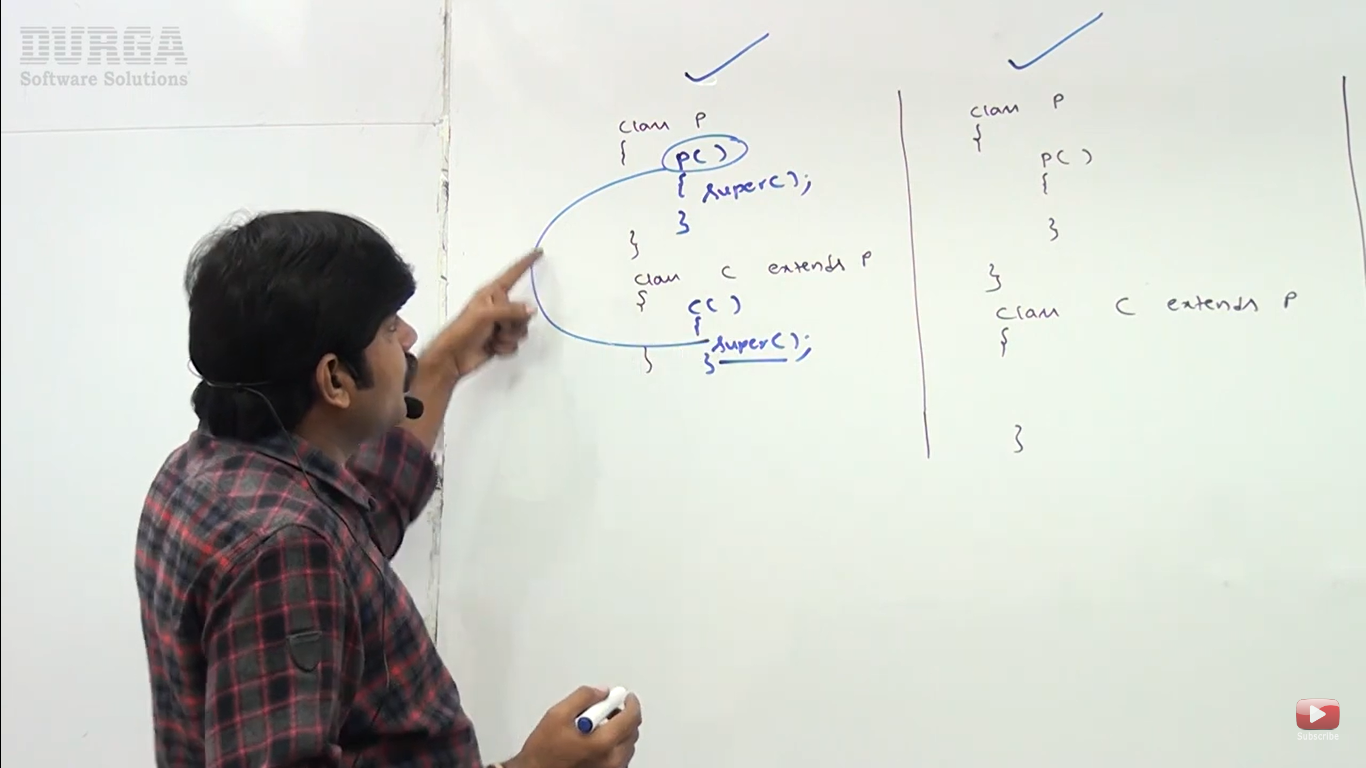 DURGA
Software Solutions
class P
{
P()
{ super();
}
}
class C extends P
{ C()
{
super();
} }
class P
{
P()
{
}
}
class C extends P
{
}
Subscribe